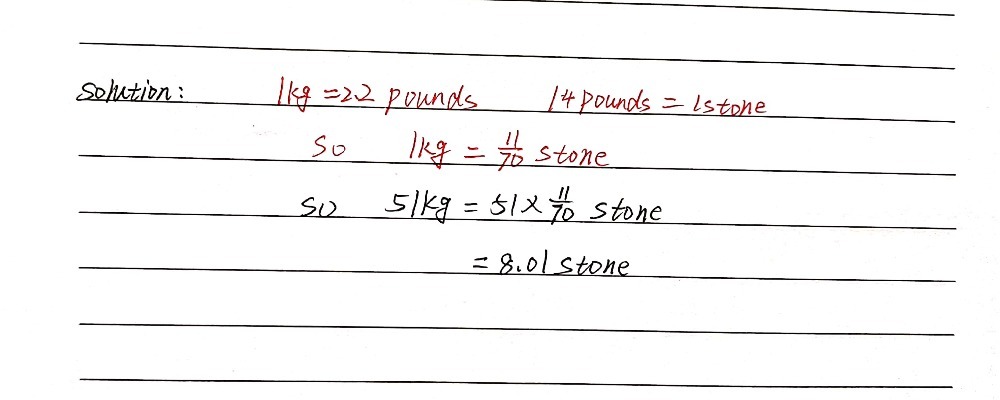 Solution: 1kg = 2.2 pounds 14 pounds = 1stone
So 1kg = 11/70 stone
So 51kg = 51 × 11/70 stone
= 8.01 stone